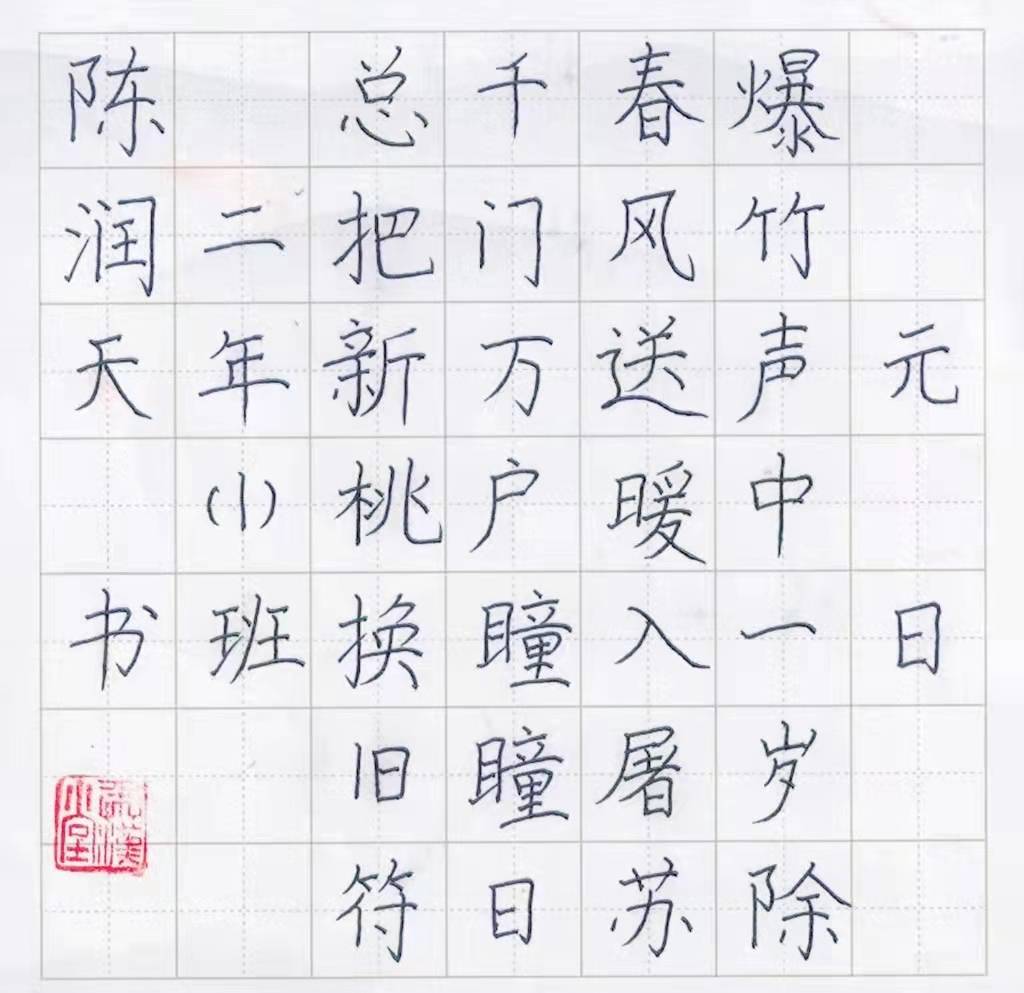 元日
爆竹声中一岁除
春风送暖入屠苏
千门万户瞳瞳日
总把新桃换旧符
二年(十)班
陈润天书